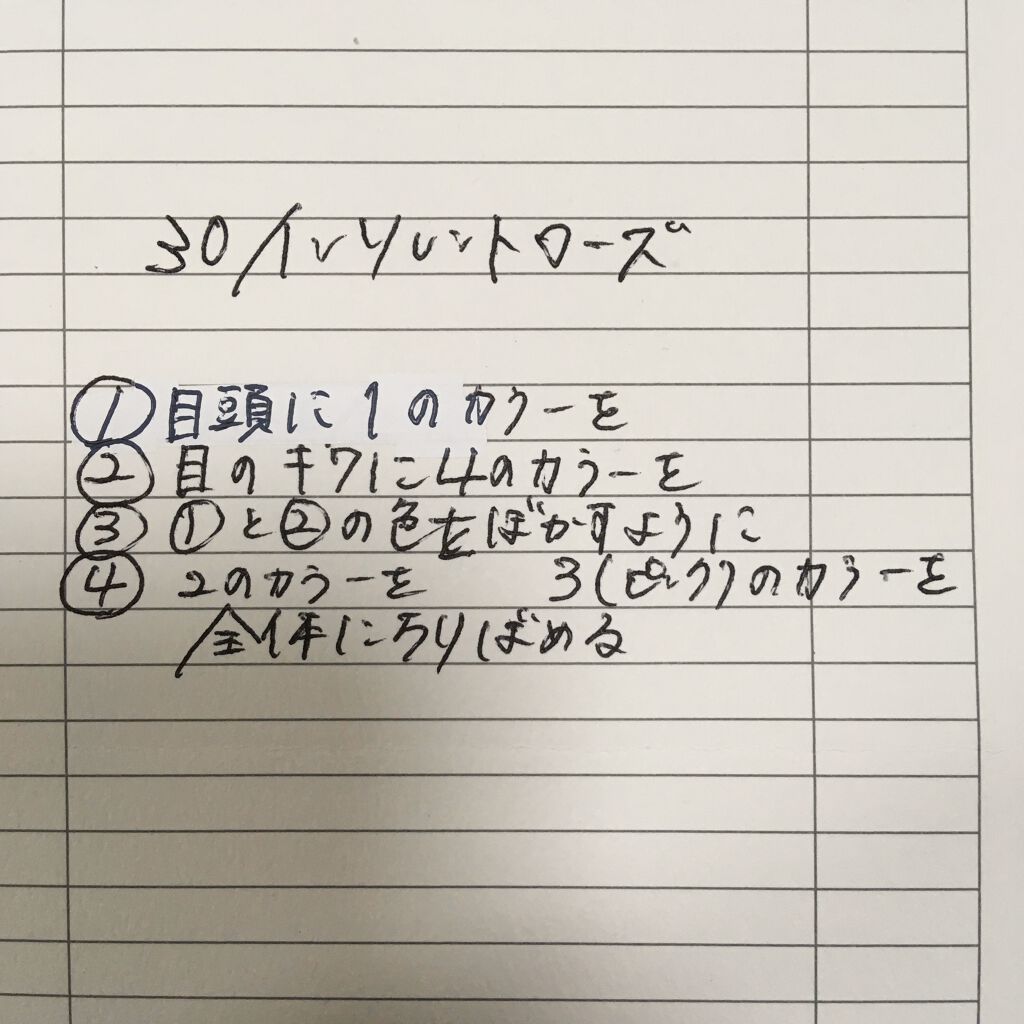 30/インソレントローズ
① 目頭に1のカラーを
② 目のキワに4のカラーを
③ ①と②の色をぼかすように
④ 2のカラーを 3(ピンク)のカラーを
全体にちりばめる